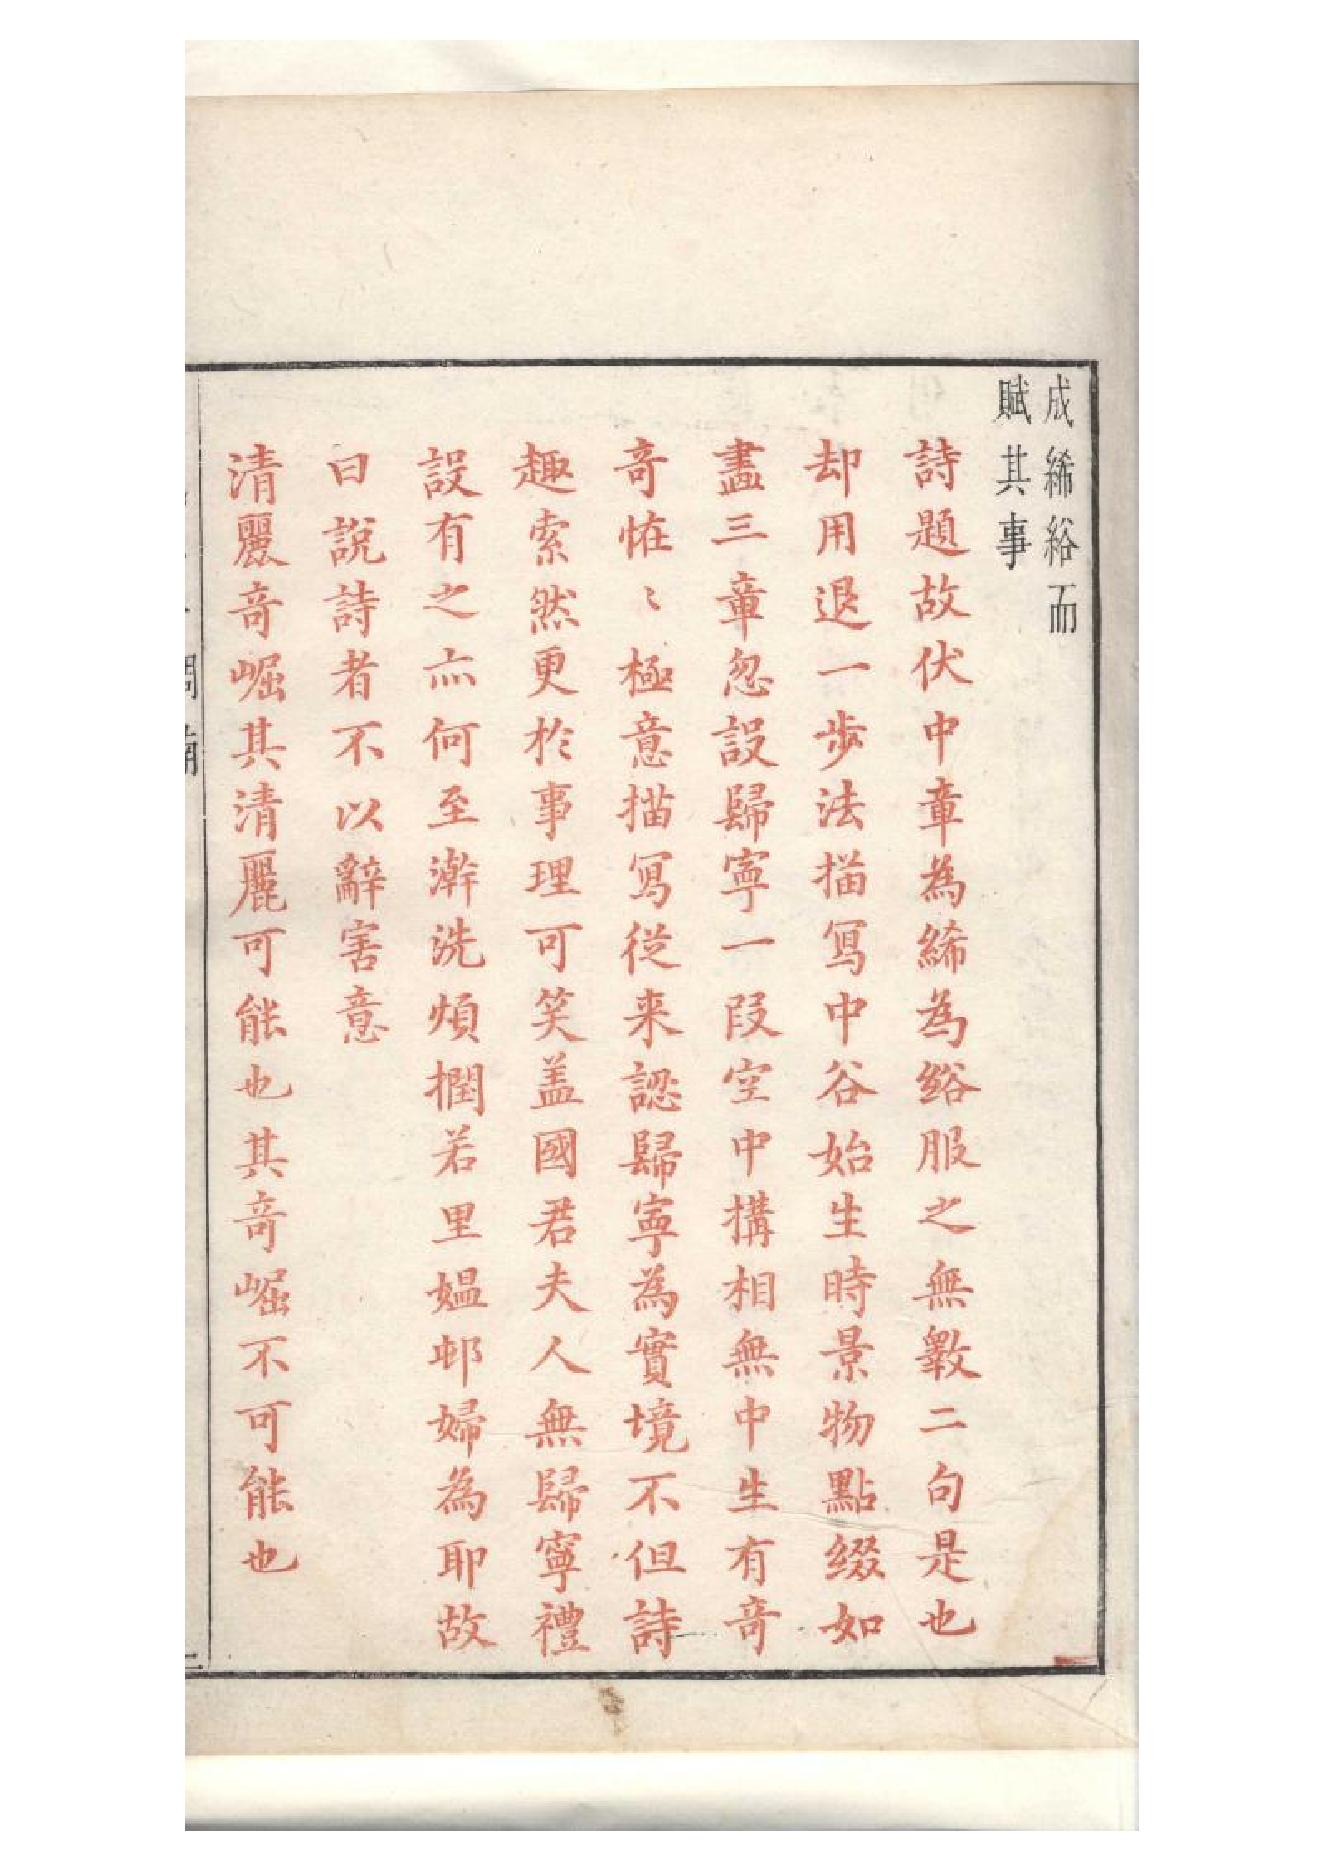 成絺綌而
賦其事
詩題故伏中章為絺為綌服之無斁二句是也
却用退一步法描寫中谷始生時景物點綴如
畫三章忽設歸寧一段空中搆相無中生有竒
竒恠〻極意描寫從来認歸寧為實境不但詩
趣索然更於事理可笑盖國君夫人無歸寧禮
設有之亦何至澣洗煩撋若里媼邨婦為耶故
曰說詩者不以辭害意
清麗竒崛其清麗可能也其竒崛不可能也
周南